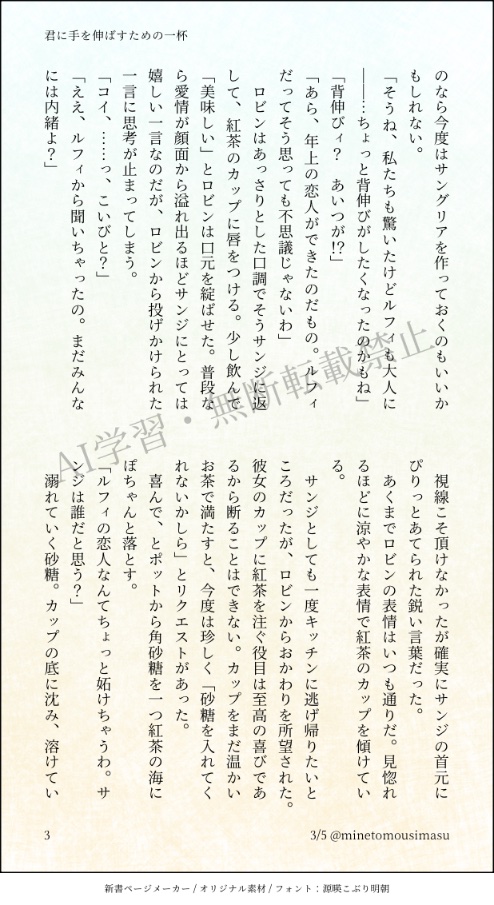 君に手を伸ばすための一杯
のなら今度はサングリアを作っておくのもいいか
もしれない。
「そうね、私たちも驚いたけどルフィも大人に
――…ちょっと背伸びがしたくなったのかもね」
「背伸びィ？　あいつが!?」
「あら、年上の恋人ができたのだもの。ルフィ
だってそう思っても不思議じゃないわ」
　ロビンはあっさりとした口調でそうサンジに返
して、紅茶のカップに唇をつける。少し飲んで
「美味しい」とロビンは口元を綻ばせた。普段な
ら愛情が顔面から溢れ出るほどサンジにとっては
嬉しい一言なのだが、ロビンから投げかけられた
一言に思考が止まってしまう。
「コイ、……っ、こいびと？」
「ええ、ルフィから聞いちゃったの。まだみんな
には内緒よ？」
　視線こそ頂けなかったが確実にサンジの首元に
ぴりっとあてられた鋭い言葉だった。
　あくまでロビンの表情はいつも通りだ。見惚れ
るほどに涼やかな表情で紅茶のカップを傾けてい
る。
　サンジとしても一度キッチンに逃げ帰りたいと
ころだったが、ロビンからおかわりを所望された。
彼女のカップに紅茶を注ぐ役目は至高の喜びであ
るから断ることはできない。カップをまだ温かい
お茶で満たすと、今度は珍しく「砂糖を入れてく
れないかしら」とリクエストがあった。
　喜んで、とポットから角砂糖を一つ紅茶の海に
ぽちゃんと落とす。
「ルフィの恋人なんてちょっと妬けちゃうわ。サ
ンジは誰だと思う？」
　溺れていく砂糖。カップの底に沈み、溶けてい
AI学習・無断転載禁止
3
3/5 @minetomousimasu
新書ページメーカー / オリジナル素材 / フォント：源暎こぶり明朝